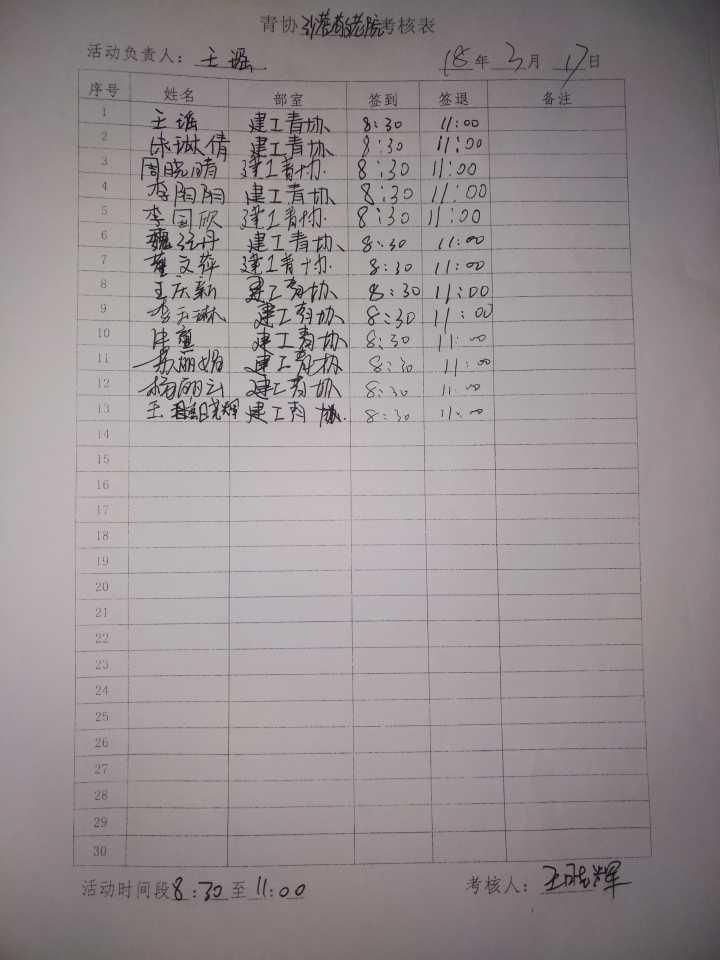 青协沙港敬老院考核表
活动负责人：王瑶 18年3月17日
序号 姓名 部室 签到 签退 备注
1 王瑶 建工青协 8:30 11:00
2 琳倩 建工青协 8:30 11:00
3 周晓晴 建工青协 8:30 11:00
4 李阳阳 建工青协 8:30 11:00
5 李国欣 建工青协 8:30 11:00
6 魏 丹 建工青协 8:30 11:00
7 董文萍 建工青协 8:30 11:00
8 王庆新 建工青协 8:30 11:00
9 李玉琳 建工青协 8:30 11:00
10 建工青协 8:30 11:00
11 苏丽娟 建工青协 8:30 11:00
12 杨丽云 建工青协 8:30 11:00
13 王晓辉 建工青协 8:30 11:00
14
15
16
17
18
19
20
21
22
23
24
25
26
27
28
29
30
活动时间段8:30至11:00 考核人：王晓辉